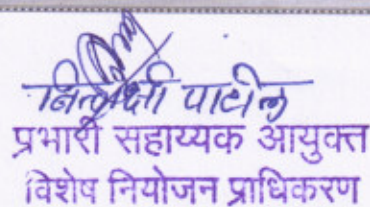 पाटील
प्रभारी सहाय्यक आयुक्त
विशेष नियोजन प्राधिकरण